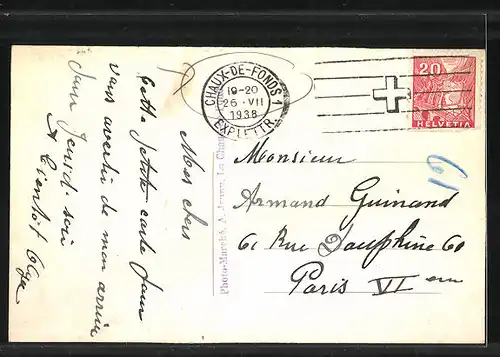 CHAUX-DE-FONDS 1
19-20
26·VII
1938
EXPL.LETTR.
20
HELVETIA
61
Monsieur
Armand Guinand
61 Rue Dauphine 60
Paris VI em
Mes chers
Cette petite carte pour
vous avertir de mon arrivée
pour Jeudi soir
A bientôt
Photo-Marché, A. La Chaux